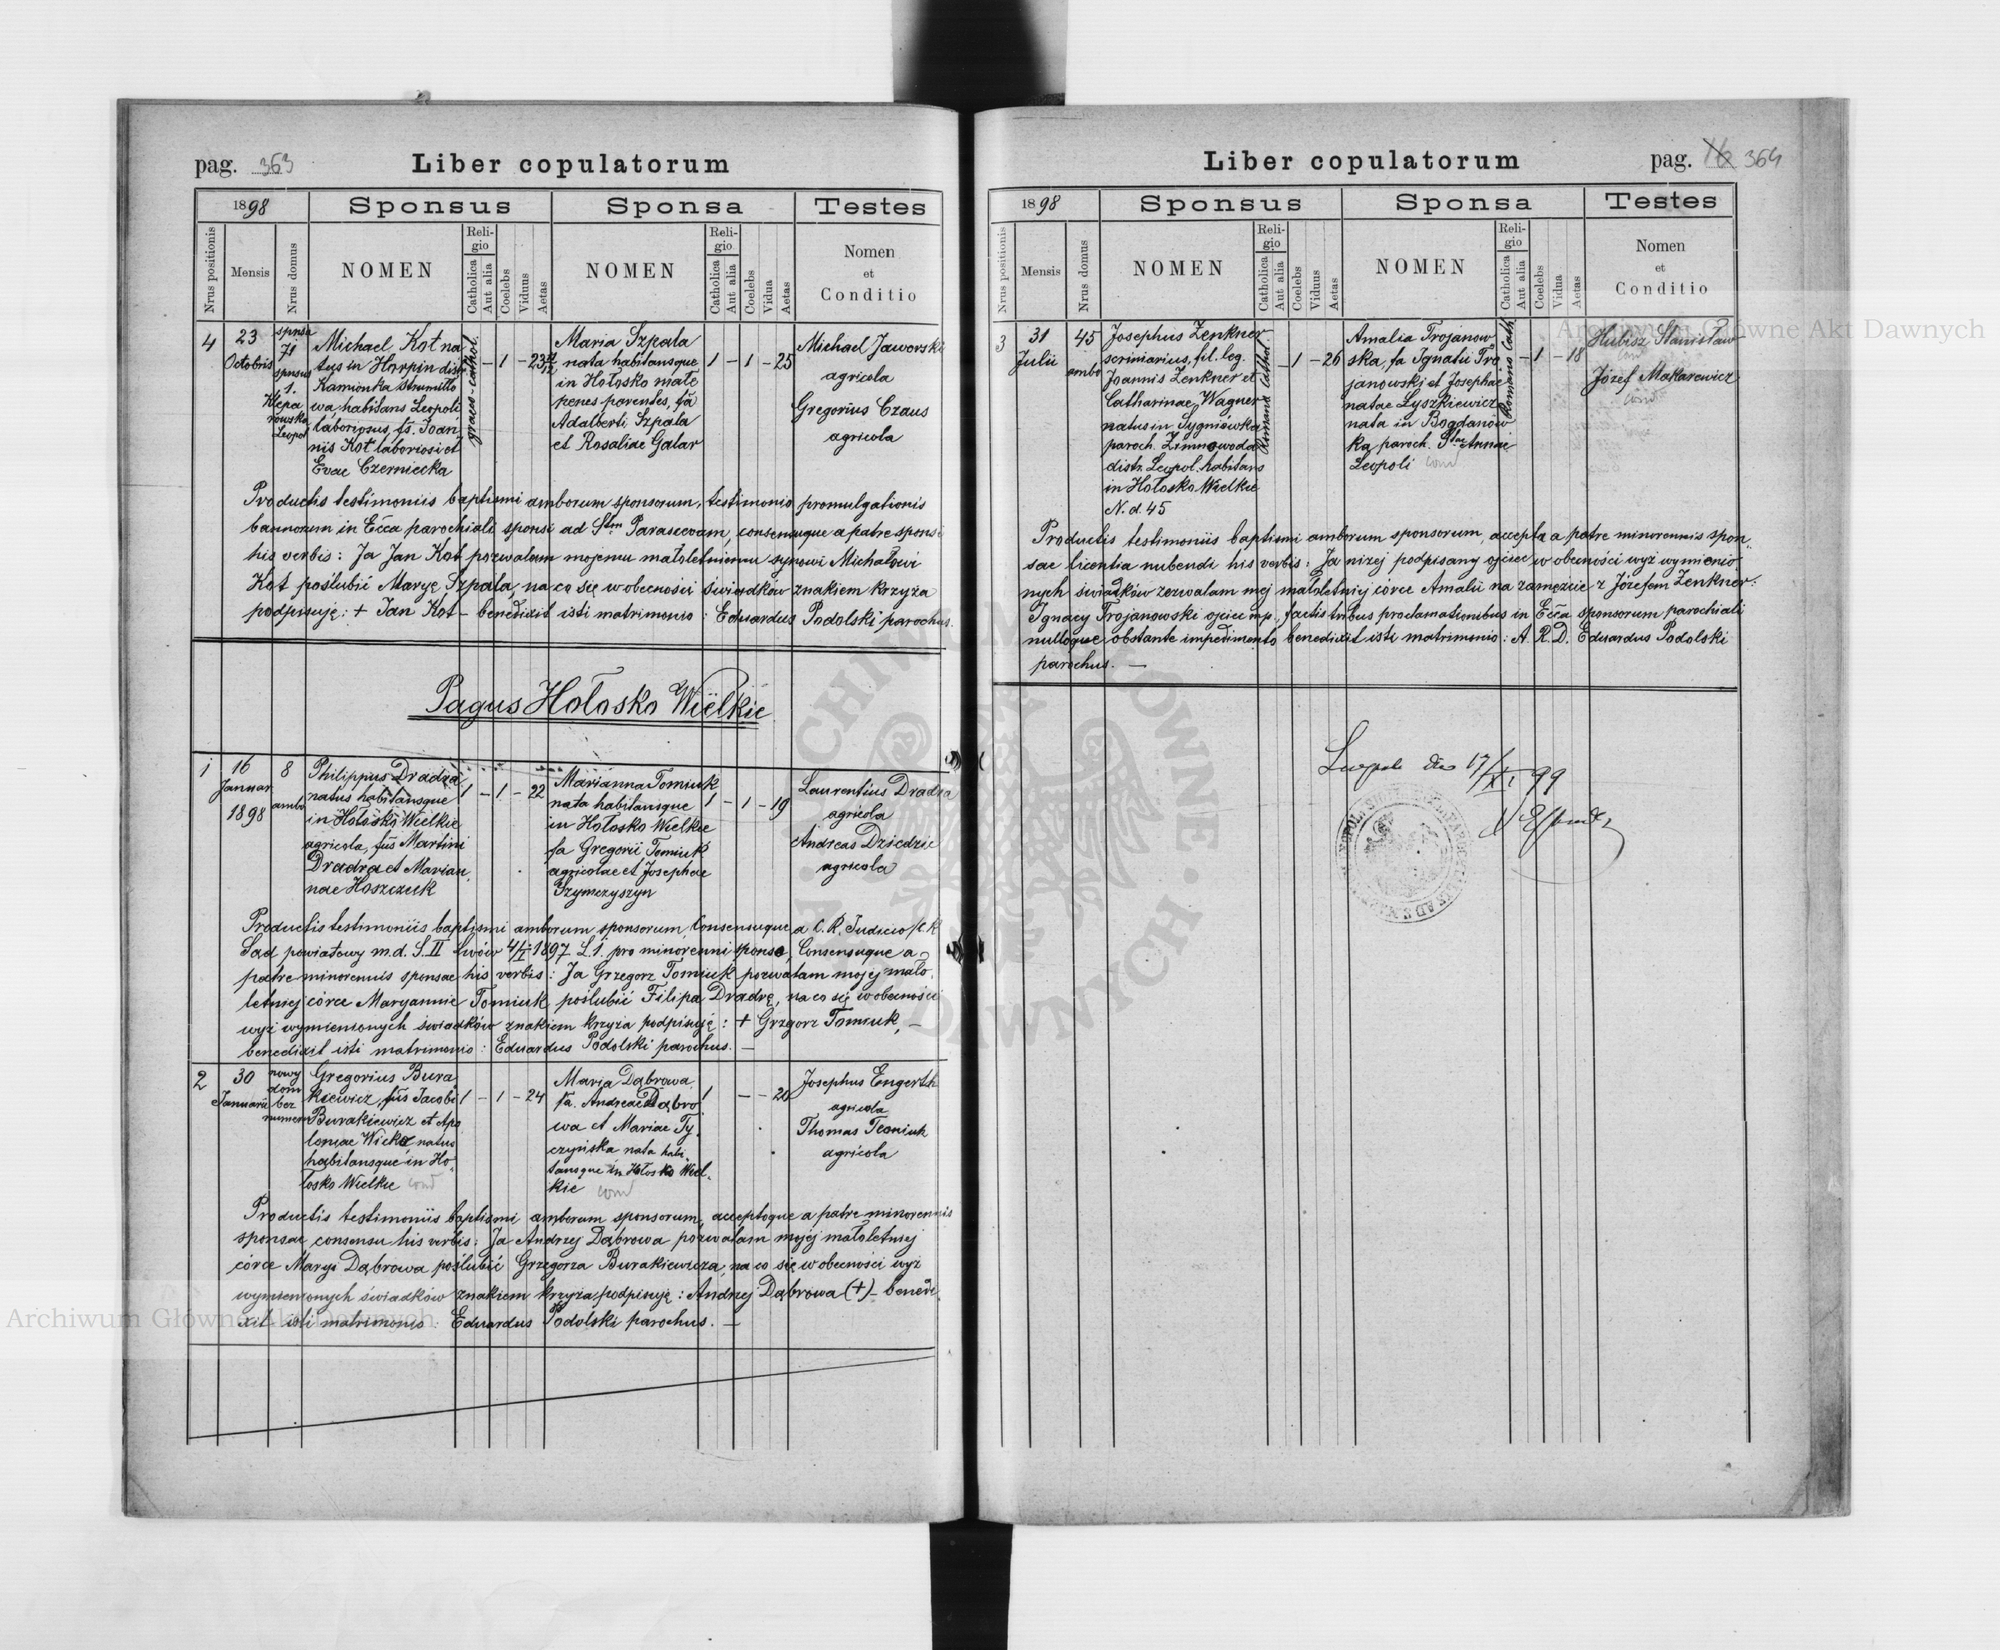 pag. 363
Liber copulatorum
1898
Sponsus
Sponsa
Testes
Nrus positionis
Mensis
Nrus domus
NOMEN
Religio
Catholica
Aut alia
Coelebs
Viduus
Aetas
NOMEN
Religio
Catholica
Aut alia
Coelebs
Vidua
Aetas
Nomen
et
Conditio
4
23
Octobris
sponsa
71
sponsus
1.
Klepa
rowska
Leopol
Michael Kot na
tus in Horpin distr.
Kamionka Strumiłło
wa, habitans Leopoli
laboriosus, fs. Joan
nis Kot laboriosi et
Evae Czerniecka
graeco-cathol.
– 1 – 23
Maria Szpala
nata habitansque
in Hołosko małe
penes parentes, fa
Adalberti Szpala
et Rosaliae Galar
1 – 1 – 25
Michael Jaworski
agricola
Gregorius Czaus
agricola
Productis testimoniis baptismi amborum sponsorum, testimonio promulgationis
bannorum in Ecca parochiali sponsi ad Stm Parascevam, consensuque a patre sponsi
his verbis: Ja Jan Kot pozwalam mojemu małoletniemu synowi Michałowi
Kot poślubić Maryę Szpala, na co się w obecności świadków znakiem krzyża
podpisuję: + Jan Kot – benedixit isti matrimonio: Eduardus Podolski parochus.
Pagus Hołosko Wielkie
1
16
Januar
1898
8
ambo
Philippus Dradra
natus habitansque
in Hołosko Wielkie
agricola, fus Martini
Dradra et Marian
nae Hoszczuk
1 – 1 – 22
Marianna Tomiuk
nata habitansque
in Hołosko Wielkie
fa Gregorii Tomiuk
agricolae et Josephae
Szymczyszyn
1 – 1 – 19
Laurentius Dradra
agricola
Andreas Dziedzic
agricola
Productis testimoniis baptismi amborum sponsorum, Consensuque a C. R. Judicio /C. K.
Sąd powiatowy m. d. S. II Lwów 4/I 1897 L. 1. pro minorenni sponso, Consensuque a
patre minorennis sponsae his verbis: Ja Grzegorz Tomiuk pozwalam mojej mało
letniej córce Maryannie Tomiuk poślubić Filipa Dradrę, na co się w obecności
wyż wymienionych świadków znakiem krzyża podpisuję: + Grzgorz Tomiuk, –
benedixit isti matrimonio: Eduardus Podolski parochus. –
2
30
Januarii
nowy
dom
bez
numeru
Gregorius Bura
kiewicz, fus Jacobi
Burakiewicz et Apo
loniae Wicko natus
habitansque in Ho
łosko Wielkie cond
1 – 1 – 24
Maria Dąbrowa
fa. Andreae Dąbro
wa et Mariae Ty
czyńska nata habi
tansque in Hołosko Wiel
kie cond
1 – – 20
Josephus Engerth
agricola
Thomas
agricola
Productis testimoniis baptismi amborum sponsorum, acceptoque a patre minorennis
sponsae consensu his verbis: Ja Andrzej Dąbrowa pozwalam mojej małoletniej
córce Maryi Dąbrowa poślubić Grzegorza Burakiewicza, na co się w obecności wyż
wymienionych świadków znakiem krzyża podpisuję: Andrzej Dąbrowa (+) – bened
ixit isti matrimonio: Eduardus Podolski parochus. –
Liber copulatorum
pag. 16 364
1898
Sponsus
Sponsa
Testes
Nrus positionis
Mensis
Nrus domus
NOMEN
Religio
Catholica
Aut alia
Coelebs
Viduus
Aetas
NOMEN
Religio
Catholica
Aut alia
Coelebs
Vidua
Aetas
Nomen
et
Conditio
3
31
Julii
45
ambo
Josephus Zenkner
scriniarius, fil. leg.
Joannis Zenkner et
Catharinae Wagner
natus in Sygniówka
paroch. Zimnowoda
distr. Leopol. habitans
in Hołosko Wielkie
N. d. 45
Romano Cathol.
– 1 – 26
Amalia Trojanow
ska, fa Ignatii Tro
janowski et Josephae
natae Łyszkiewicz
nata in Bogdanów
ka paroch. Stae Annae
Leopoli cond
Romano Cath.
– 1 – 18
Hubisz Stanisław
cond
Józef Makarewicz
cond
Productis testimoniis baptismi amborum sponsorum, accepta a patre minorennis spon
sae licentia nubendi his verbis: Ja niżej podpisany ojciec w obecności wyż wymienio
nych świadków zezwalam mej małoletniej córce Amalii na zamęźcie z Józefem Zenkner:
Ignacy Trojanowski ojciec mp, factis tribus proclamationibus in Ecca sponsorum parochiali
nulloque obstante impedimento benedixit isti matrimonio: A. R. D. Eduardus Podolski
parochus. –
Leopoli die 17/XI 99
Archiwum Główne Akt Dawnych
Archiwum Główne Akt Dawnych
ARCHIWUM GŁÓWNE AKT DAWNYCH